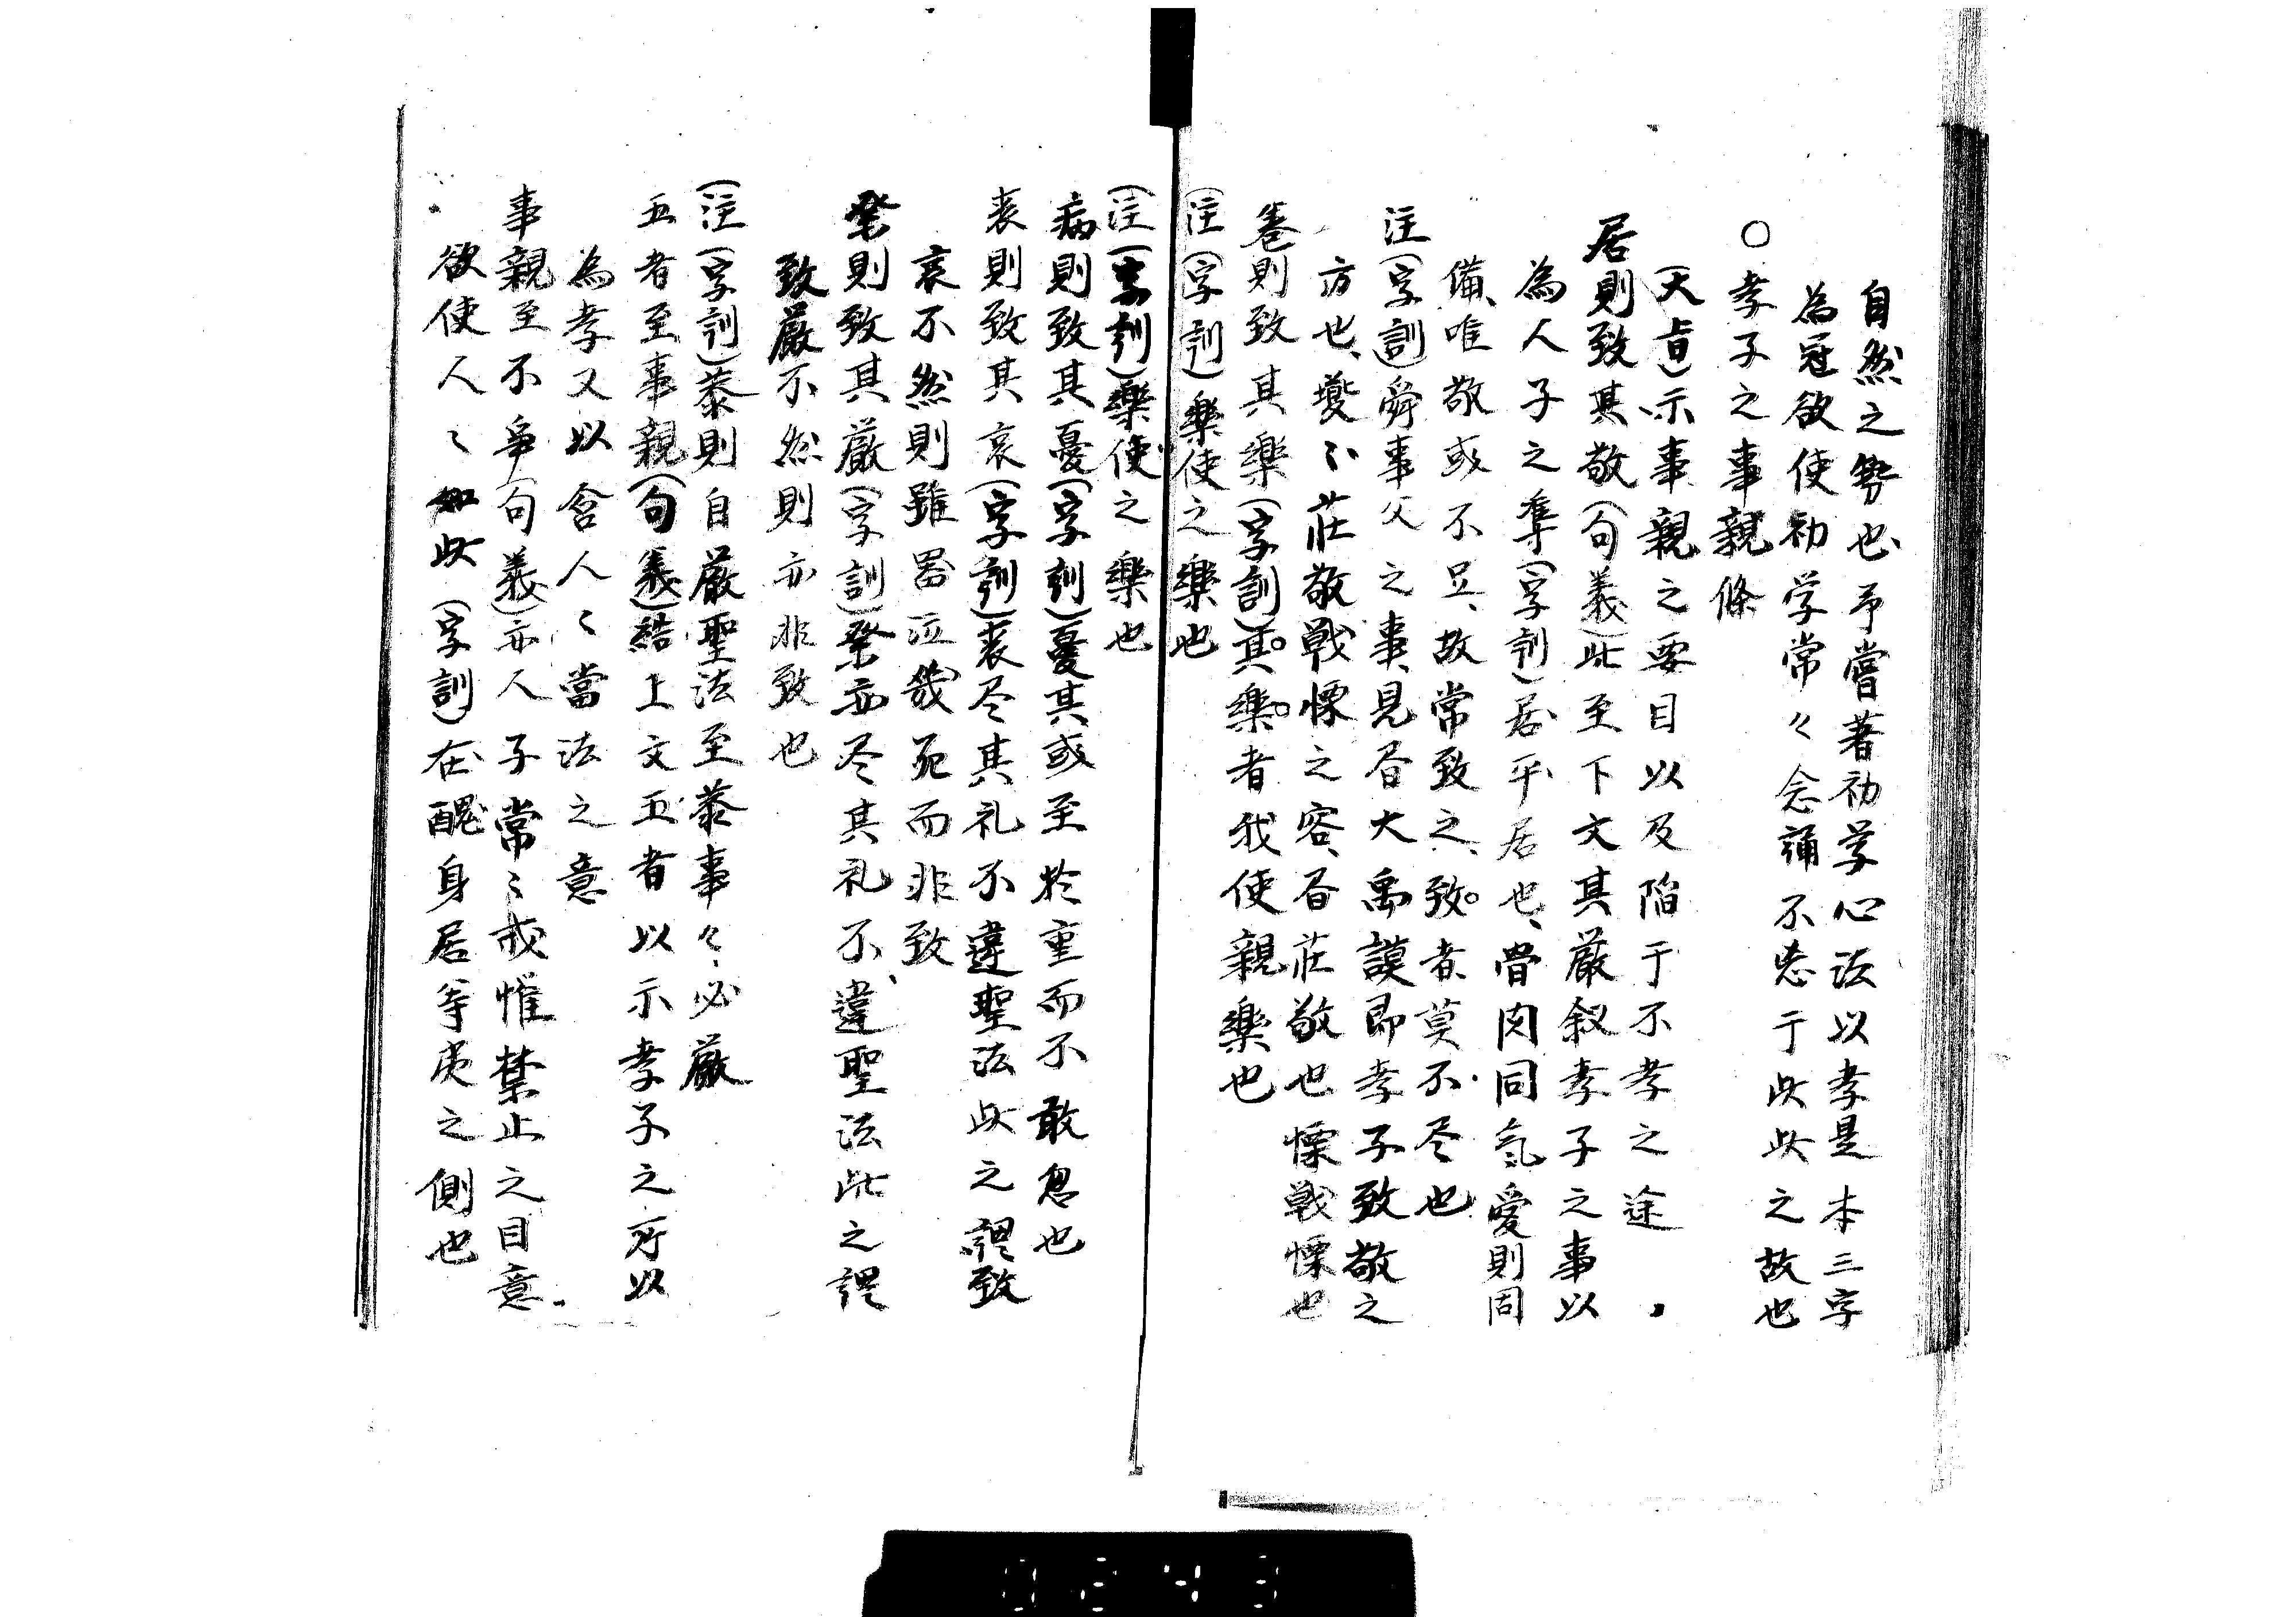 自然之勢也、予嘗著初学心法以孝是本三字
為冠欲使初学常々念誦不忘于此此之故也
○孝子之事親條
(大旨)示事親之要目以及陷于不孝之途
居則致其敬(句義)此至下文其厳叙孝子之事以
為人子之隼(字訓)居平居也、骨肉同気愛則固
備、唯敬或不足、故常致之、致者莫不尽也
注(字訓)舜事父之事、見書大禹謨即孝子致敬之
方也、夔々荘敬戦慄之容、書荘敬也慄戦慄也
養則致其楽(字訓)其楽者我使親楽也
注(字訓)楽使之楽也
注(字訓)楽使之楽也
病則致其憂(字訓)憂其或至於重而不敢忽也
喪則致其哀(字訓)喪尽其礼不違聖法此之謂致
哀不然則雖号泣幾死而非致
祭則致其厳(字訓)祭亦尽其礼不違聖法此之謂
致厳不然則亦非致也
注(字訓)恭則自厳聖法至恭事々必厳
五者至事親(句義)結上文五者以示孝子之所以
為孝又以含人々當法之意
事親至不争(句義)亦人子常々戒惟禁止之目意
欲使人々如此(字訓)在醜身居等夷之側也